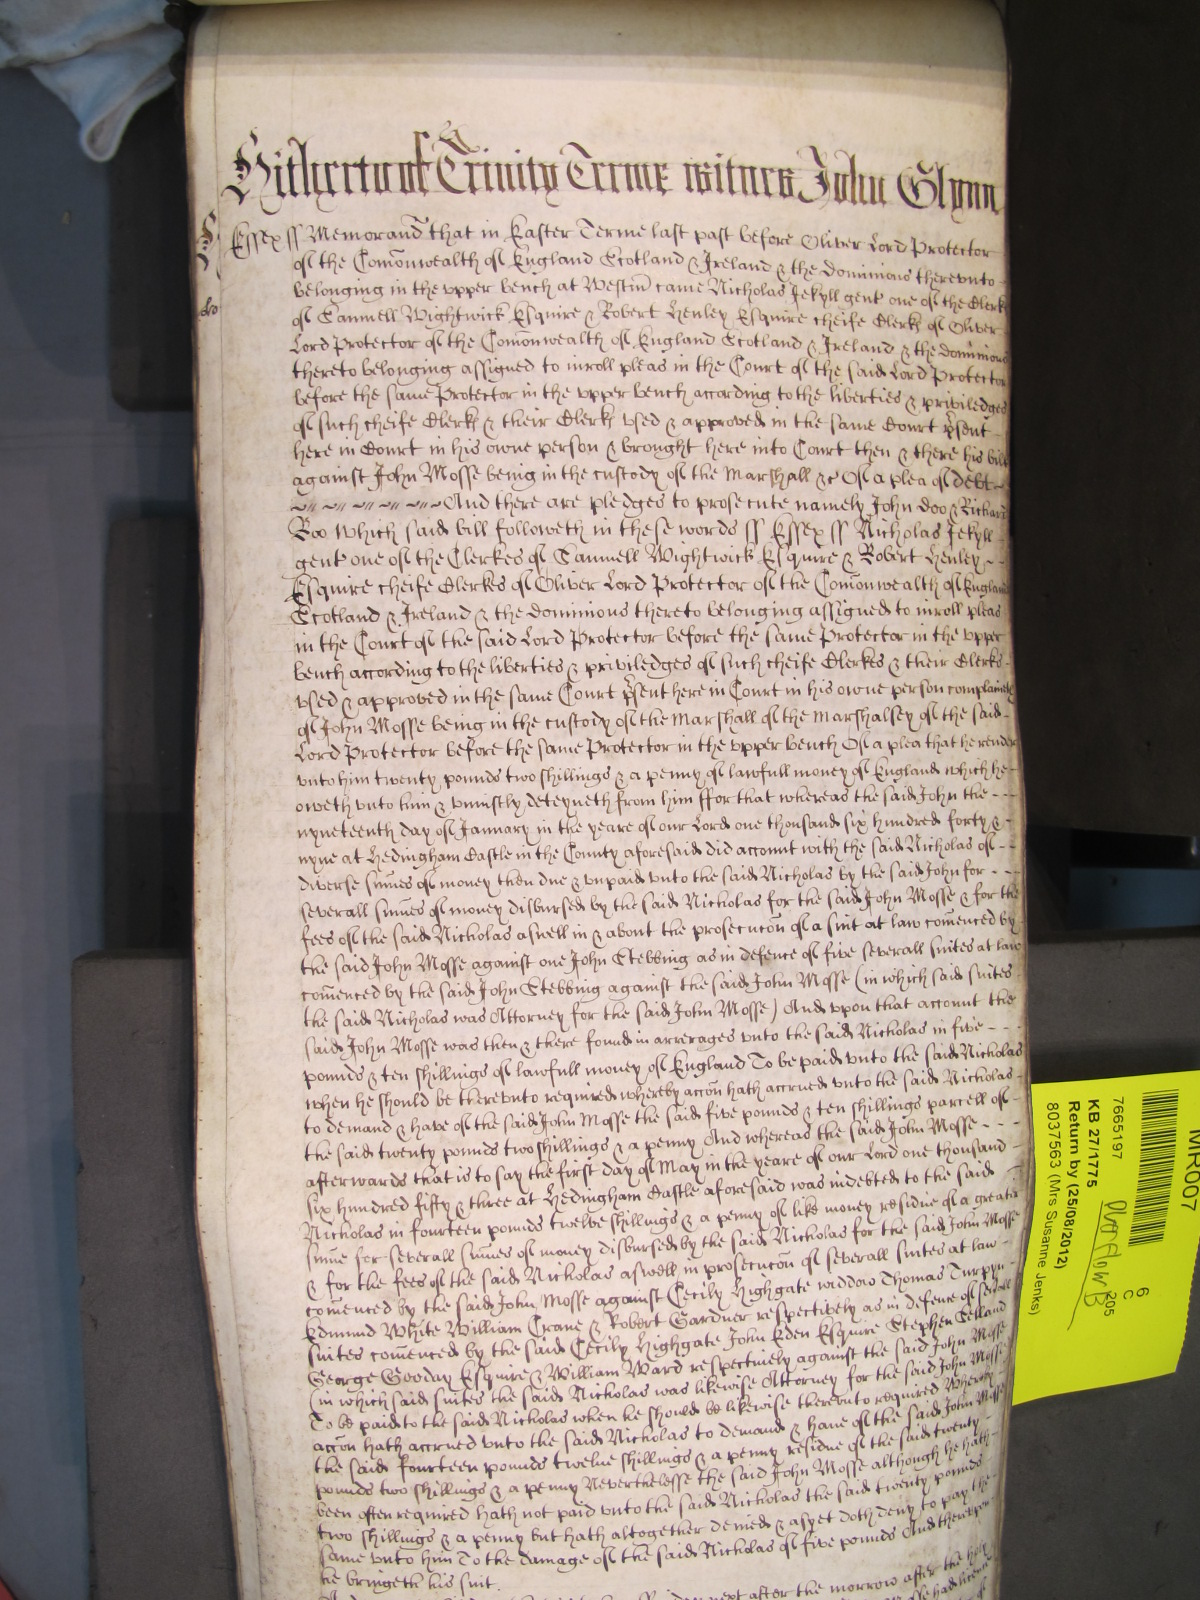 Hitherto of Trinity Terme witnes John Glynn
Essex ss Memorand that in Easter Terme last past before Oliver Lord Protector
of the Com̄onwealth of England Scotland & Ireland & the dominions therevnto
belonging in the vpper bench at Westm̄ came Nicholas Jekyll gent one of the Clerk
of Samuell Wightwick Esquire & Robert Henley Esquire cheife Clerk of Oliver
Lord Protector of the Com̄onwealth of England Scotland & Ireland & the dominions
thereto belonging assigned to inroll pleas in the Court of the said Lord Protector
before the same Protector in the vpper bench according to the liberties & priviledges
of such cheife Clerk & their Clerk vsed & approved in the same Court p̄sent
here in Court in his owne person & brought here into Court then & there his bill
against John Mosse being in the custody of the Marshall &c Of a plea of debt
And there are pledges to prosecute namely John Doo & Richard
Roo Which said bill followeth in these words ss Essex ss Nicholas Jekyll
gent one of the Clerkes of Samuell Wightwick Esquire & Robert Henley
Esquire cheife Clerkes of Oliver Lord Protector of the Com̄onwealth of England
Scotland & Ireland & the dominions thereto belonging assigned to inroll pleas
in the Court of the said Lord Protector before the same Protector in the vpper
bench according to the liberties & priviledges of such cheife Clerkes & their Clerkes
vsed & approved in the same Court p̄sent here in Court in his owne person complaineth
of John Mosse being in the custody of the Marshall of the Marshalsey of the said
Lord Protector before the same Protector in the vpper bench Of a plea that he render
vnto him twenty pounds two shillings & a penny of lawfull money of England which he
oweth vnto him & vniustly deteyneth from him ffor that whereas the said John the
nyneteenth day of January in the yeare of our Lord one thousand six hundred forty &
nyne at Hedingham Castle in the County aforesaid did account with the said Nicholas of
diverse sum̄es of money then due & vnpaid vnto the said Nicholas by the said John for
severall sum̄es of money disbursed by the said Nicholas for the said John Mosse & for the
fees of the said Nicholas aswell in & about the prosecucōn of a suit at law com̄enced by
the said John Mosse against one John Stebbing as in defence of five severall suites at law
com̄enced by the said John Stebbing against the said John Mosse (in which said suites
the said Nicholas was Attorney for the said John Mosse) And vpon that account the
said John Mosse was then & there found in arrerages vnto the said Nicholas in five
pounds & ten shillings of lawfull money of England To be paid vnto the said Nicholas
when he should be therevnto required whereby accōn hath accrued vnto the said Nicholas
to demand & have of the said John Mosse the said five pounds & ten shillings parcell of
the said twenty pounds two shillings & a penny And whereas the said John Mosse
afterwards that is to say the first day of May in the yeare of our Lord one thousand
six hundred fifty & three at Hedingham Castle aforesaid was indebted to the said
Nicholas in fourteen pounds twelve shillings & a penny of like money residue of a greater
sum̄e for severall sum̄es of money disbursed by the said Nicholas for the said John Mosse
& for the fees of the said Nicholas aswell in prosecucōn of severall suites at law
com̄enced by the said John Mosse against Cecily Highgate widdow Thomas Turpyn
Edmund White William Crane & Robert Gardner respectively as in defence of severall
suites com̄enced by the said Cecily Highgate John Eden Esquire Stephen
George Gooday Esquire & William Ward respectively against the said John Mosse
(in which said suites the said Nicholas was likewise Attorney for the said John Mosse
To be paid to the said Nicholas when he should be likewise therevnto required Whereby
accōn hath accrued vnto the said Nicholas to demand & haue of the said John Mosse
the said fourteen pounds twelue shillings & a penny residue of the said twenty
pounds two shillings & a penny Neverthelesse the said John Mosse although he hath
been often required hath not paid vnto the said Nicholas the said twenty pounds
two shillings & a penny but hath altogether denied & as yet doth deny to pay the
same vnto him To the damage of the said Nicholas of five pounds And therevpon
he bringeth his suit.
next after the morrow after the holy
MR007
7665197
KB 27/1775
Return by (25/08/2012)
8037563 (Mrs Susanne Jenks)
Overflow B
6
C
205